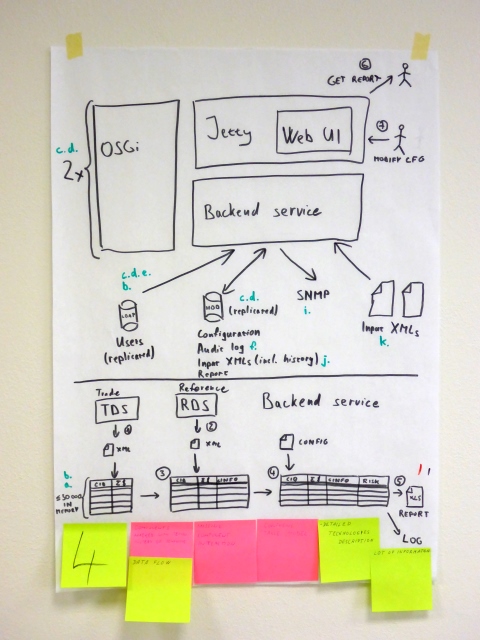 6
GET REPORT
7
MODIFY CFG
c.d.
2x
OSGi
Jetty
Web UI
Backend service
c.d.e.
b.
LDAP
Users
(replicated)
c.d.
(replicated)
Configuration
Audit log f.
Input XMLs (incl. history) j.
Report
SNMP
i.
Input XMLs
k.
Trade
TDS
XML
Reference
RDS
2
XML
Backend service
CONFIG
b.
a.
≤30000
IN
MEMORY
3
4
RISK
5
XLS
REPORT
LOG
4
DATA FLOW
DETAILED
TECHNOLOGIES
DESCRIPTION
LIST OF INFORMATION